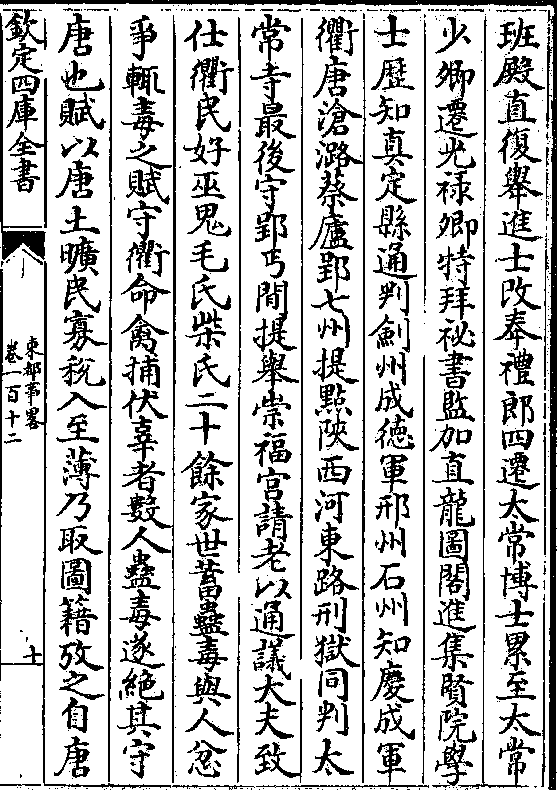 班殿直復舉進士改奉禮郎四遷太常博士累至太常
少卿遷光禄卿特拜祕書監加直龍圖閣進集賢院學
士歴知真定縣通判劍州成徳軍邢州石州知慶成軍
衢唐滄潞蔡廬郢七州提點陜西河東路刑獄同判太
常寺最後守郢丐閒提舉崇福宫請老以通議大夫致
仕衢民好巫鬼毛氏柴氏二十餘家世蓄蠱毒與人忿
爭輒毒之賦守衢命禽捕伏辜者數人蠱毒遂絶其守
唐也賦以唐土曠民寡税入至薄乃取圖籍攷之自唐
欽定四庫全書
東都事畧
卷一百十二
十